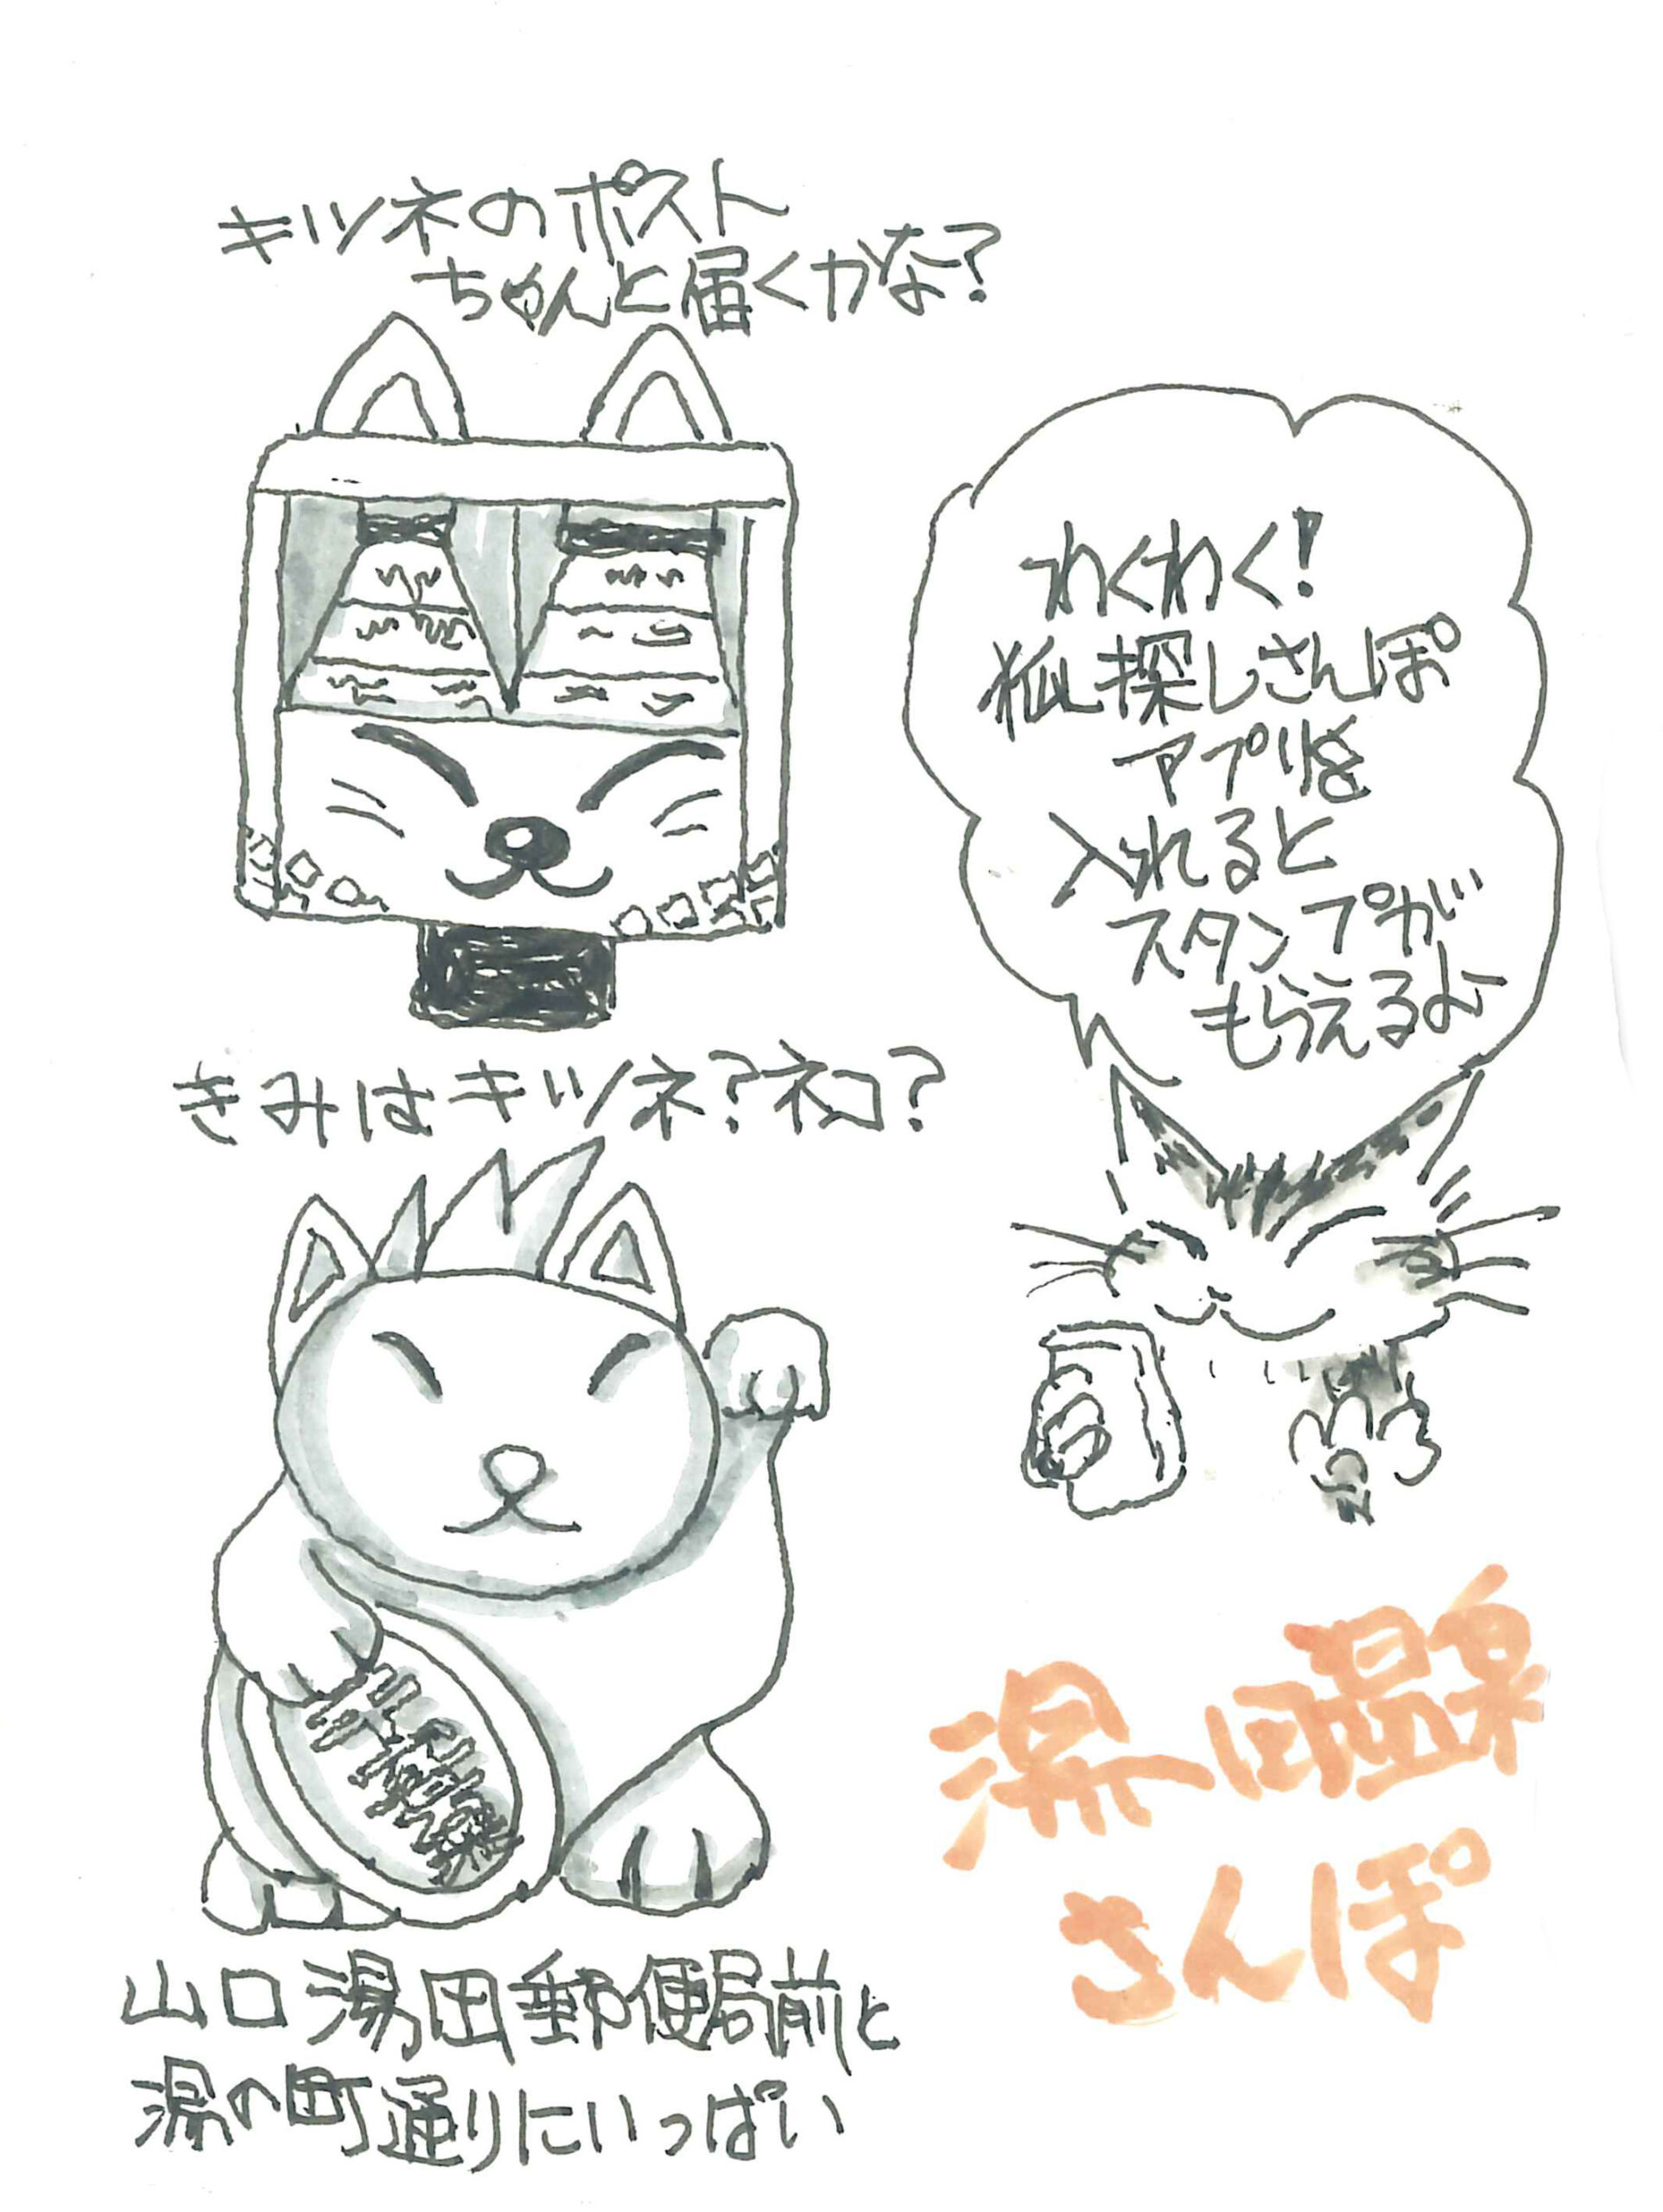 キツネのポスト
ちゃんと届くかな?
わくわく!
狐探しさんぽ
アプリを
入れると
スタンプが
もらえるよ
きみはキツネ?ネコ?
湯田温泉
さんぽ
山口湯田郵便局前と
湯の町通りにいっぱい